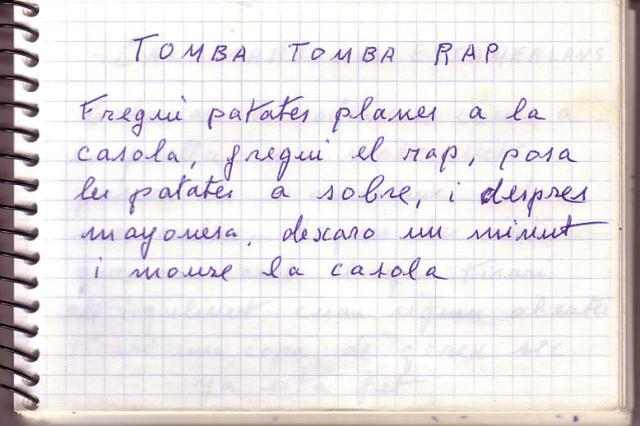 TOMBA TOMBA RAP
Fregui patates planes a la
casola, fregui el rap, posa
les patates a sobre, i despres
mayonesa, dexaro un minut
i moure la casola